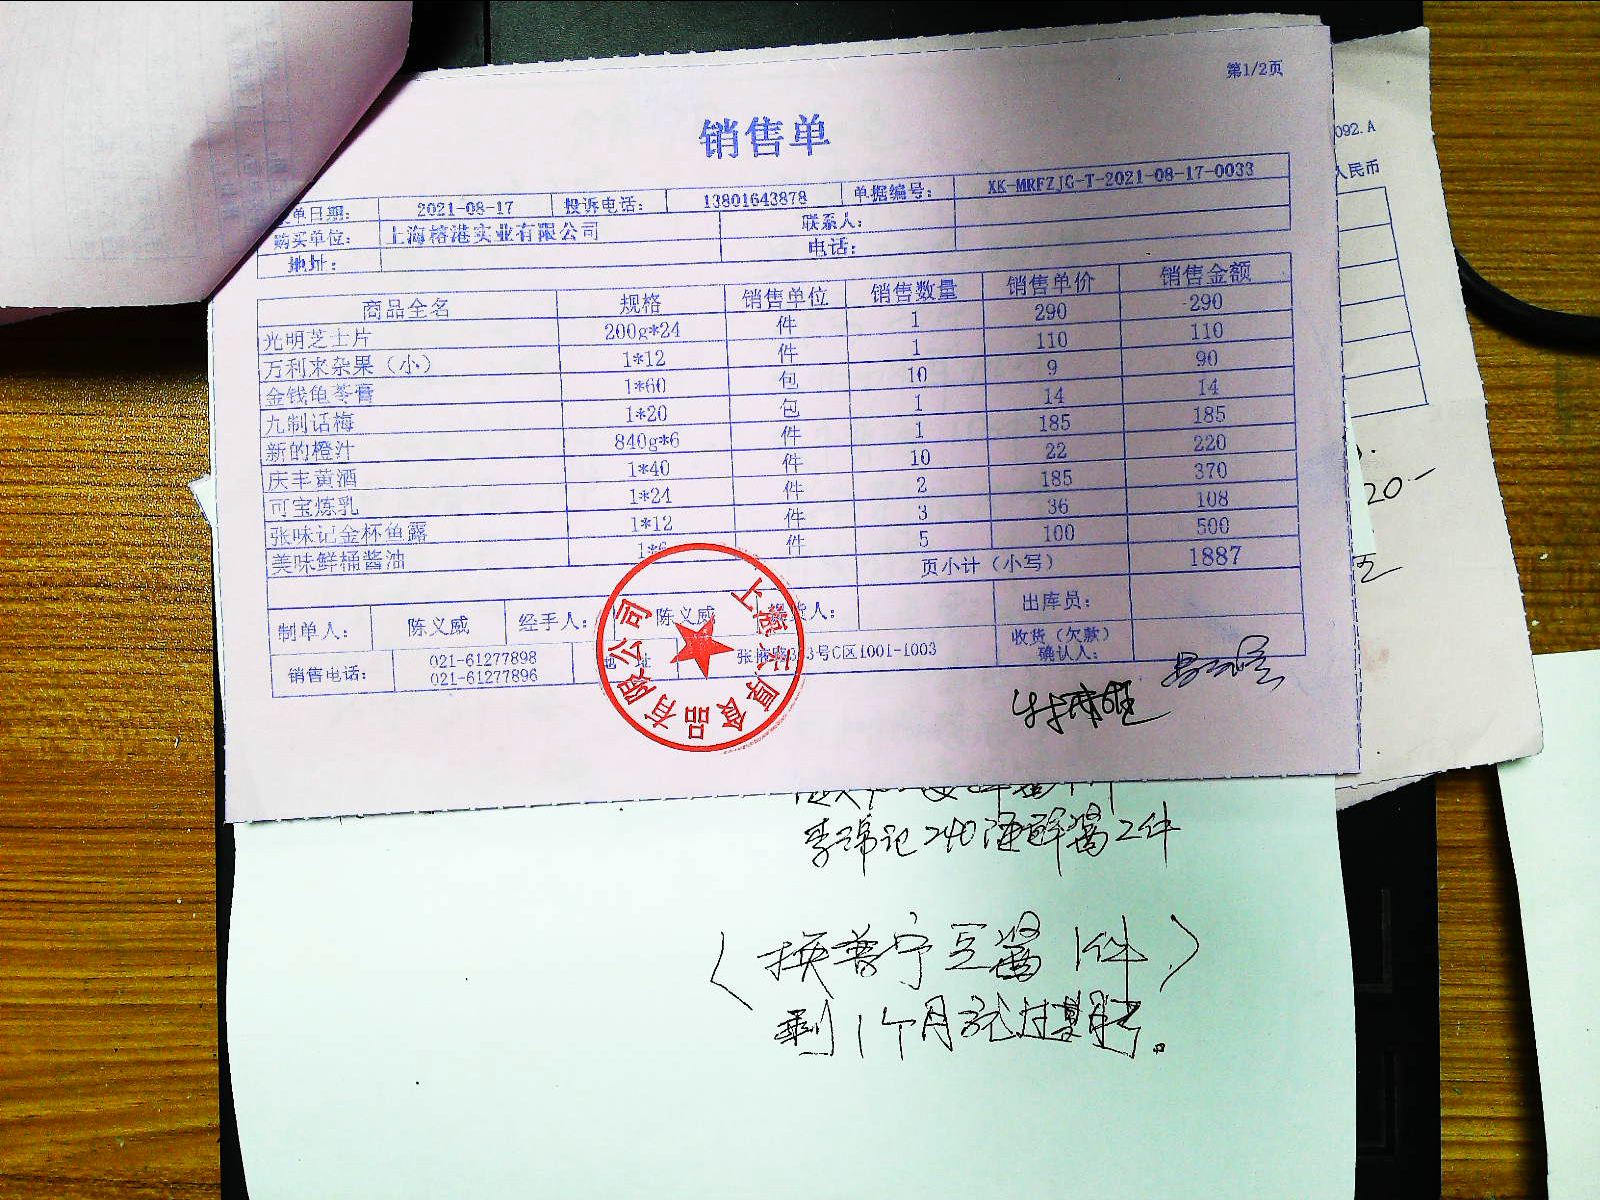 第1/2页
销售单
单日期： 2021-08-17 投诉电话： 13801643878 单据编号： XK-MRFZJG-T-2021-08-17-0033
购买单位： 上海榕港实业有限公司 联系人：
地址： 电话：
商品全名 规格 销售单位 销售数量 销售单价 销售金额
光明芝士片 200g*24 件 1 290 290
万利来杂果（小） 1*12 件 1 110 110
金钱龟苓膏 1*60 包 10 9 90
九制话梅 1*20 包 1 14 14
新的橙汁 840g*6 件 1 185 185
庆丰黄酒 1*40 件 10 22 220
可宝炼乳 1*24 件 2 185 370
张味记金杯鱼露 1*12 件 3 36 108
美味鲜桶酱油 1*6 件 5 100 500
页小计（小写） 1887
制单人： 陈义威 经手人： 陈义威 货人： 出库员：
销售电话： 021-61277898 地 址 号C区1001-1003 收货（欠款）
021-61277896 确认人：
上海 厚食品有限公司
092.A
人民币
20-
李锦记240海鲜酱2件
（换普宁豆酱1件）
剩1个月就过期了。